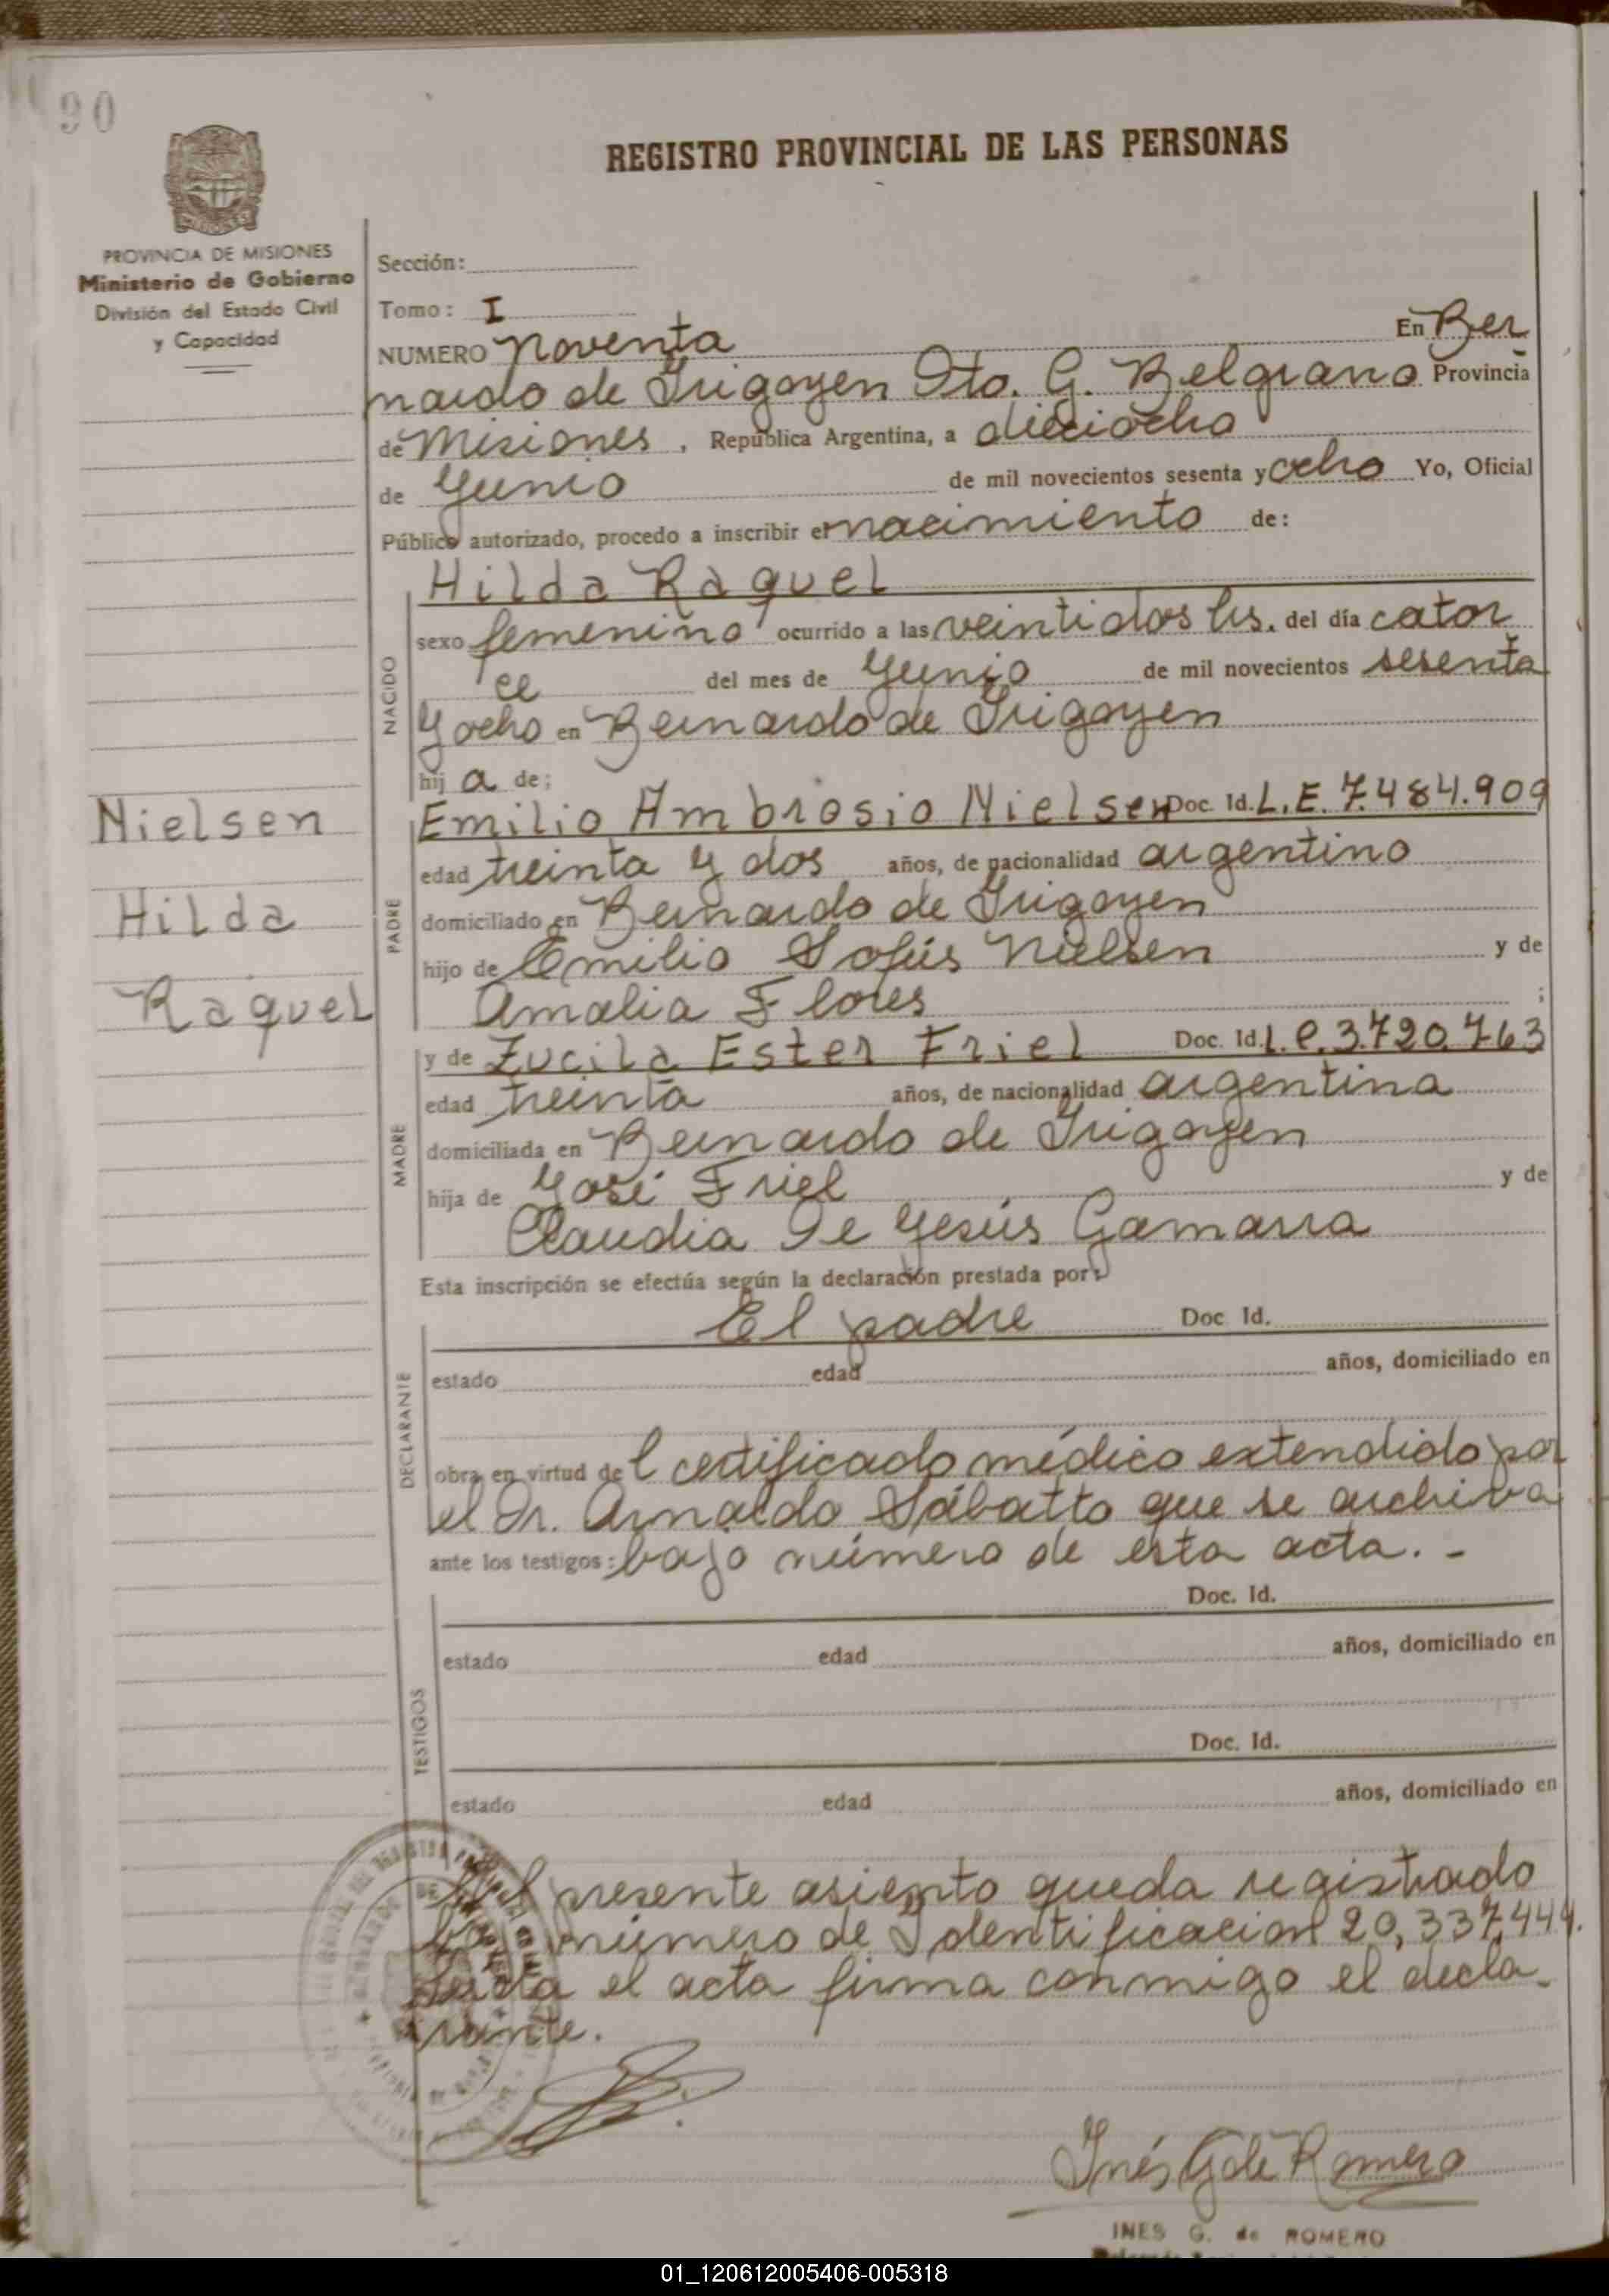 90
REGISTRO PROVINCIAL DE LAS PERSONAS
PROVINCIA DE MISIONES
Ministerio de Gobierno
División del Estado Civil
y Capacidad
Sección:
Tomo: I
NUMERO noventa En Ber
nardo de Irigoyen Dto. G. Belgrano Provincia
de Misiones, República Argentina, a dieciocho
de Junio de mil novecientos sesenta y ocho Yo, Oficial
Público autorizado, procedo a inscribir el nacimiento de:
Hilda Raquel
NACIDO
sexo femenino ocurrido a las veintidos hs. del día cator
ce del mes de Junio de mil novecientos sesenta
y ocho en Bernardo de Irigoyen
hij a de;
Nielsen
Hilda
Raquel
PADRE
Emilio Ambrosio Nielsen Doc. Id. L.E. 7.484.909
edad treinta y dos años, de nacionalidad argentino
domiciliado en Bernardo de Irigoyen
hijo de Emilio Sofús Nielsen y de
Amalia Flores ;
MADRE
y de Zucila Ester Friel Doc. Id. L.C. 3.720.763
edad treinta años, de nacionalidad argentina
domiciliada en Bernardo de Irigoyen
hija de José Friel y de
Claudia De Jesús Gamarra
Esta inscripción se efectúa según la declaración prestada por:
DECLARANTE
El padre Doc Id.
estado edad años, domiciliado en
obra en virtud de l certificado médico extendido por
el Dr. Arnaldo Sábatto que se archiva
ante los testigos: bajo número de esta acta. -
TESTIGOS
Doc. Id.
estado edad años, domiciliado en
Doc. Id.
estado edad años, domiciliado en
El presente asiento queda registrado
bajo número de Identificacion 20,337,444.
Leida el acta firma conmigo el decla-
rante.
Inés G de Romero
INES G. de ROMERO
01_120612005406-005318